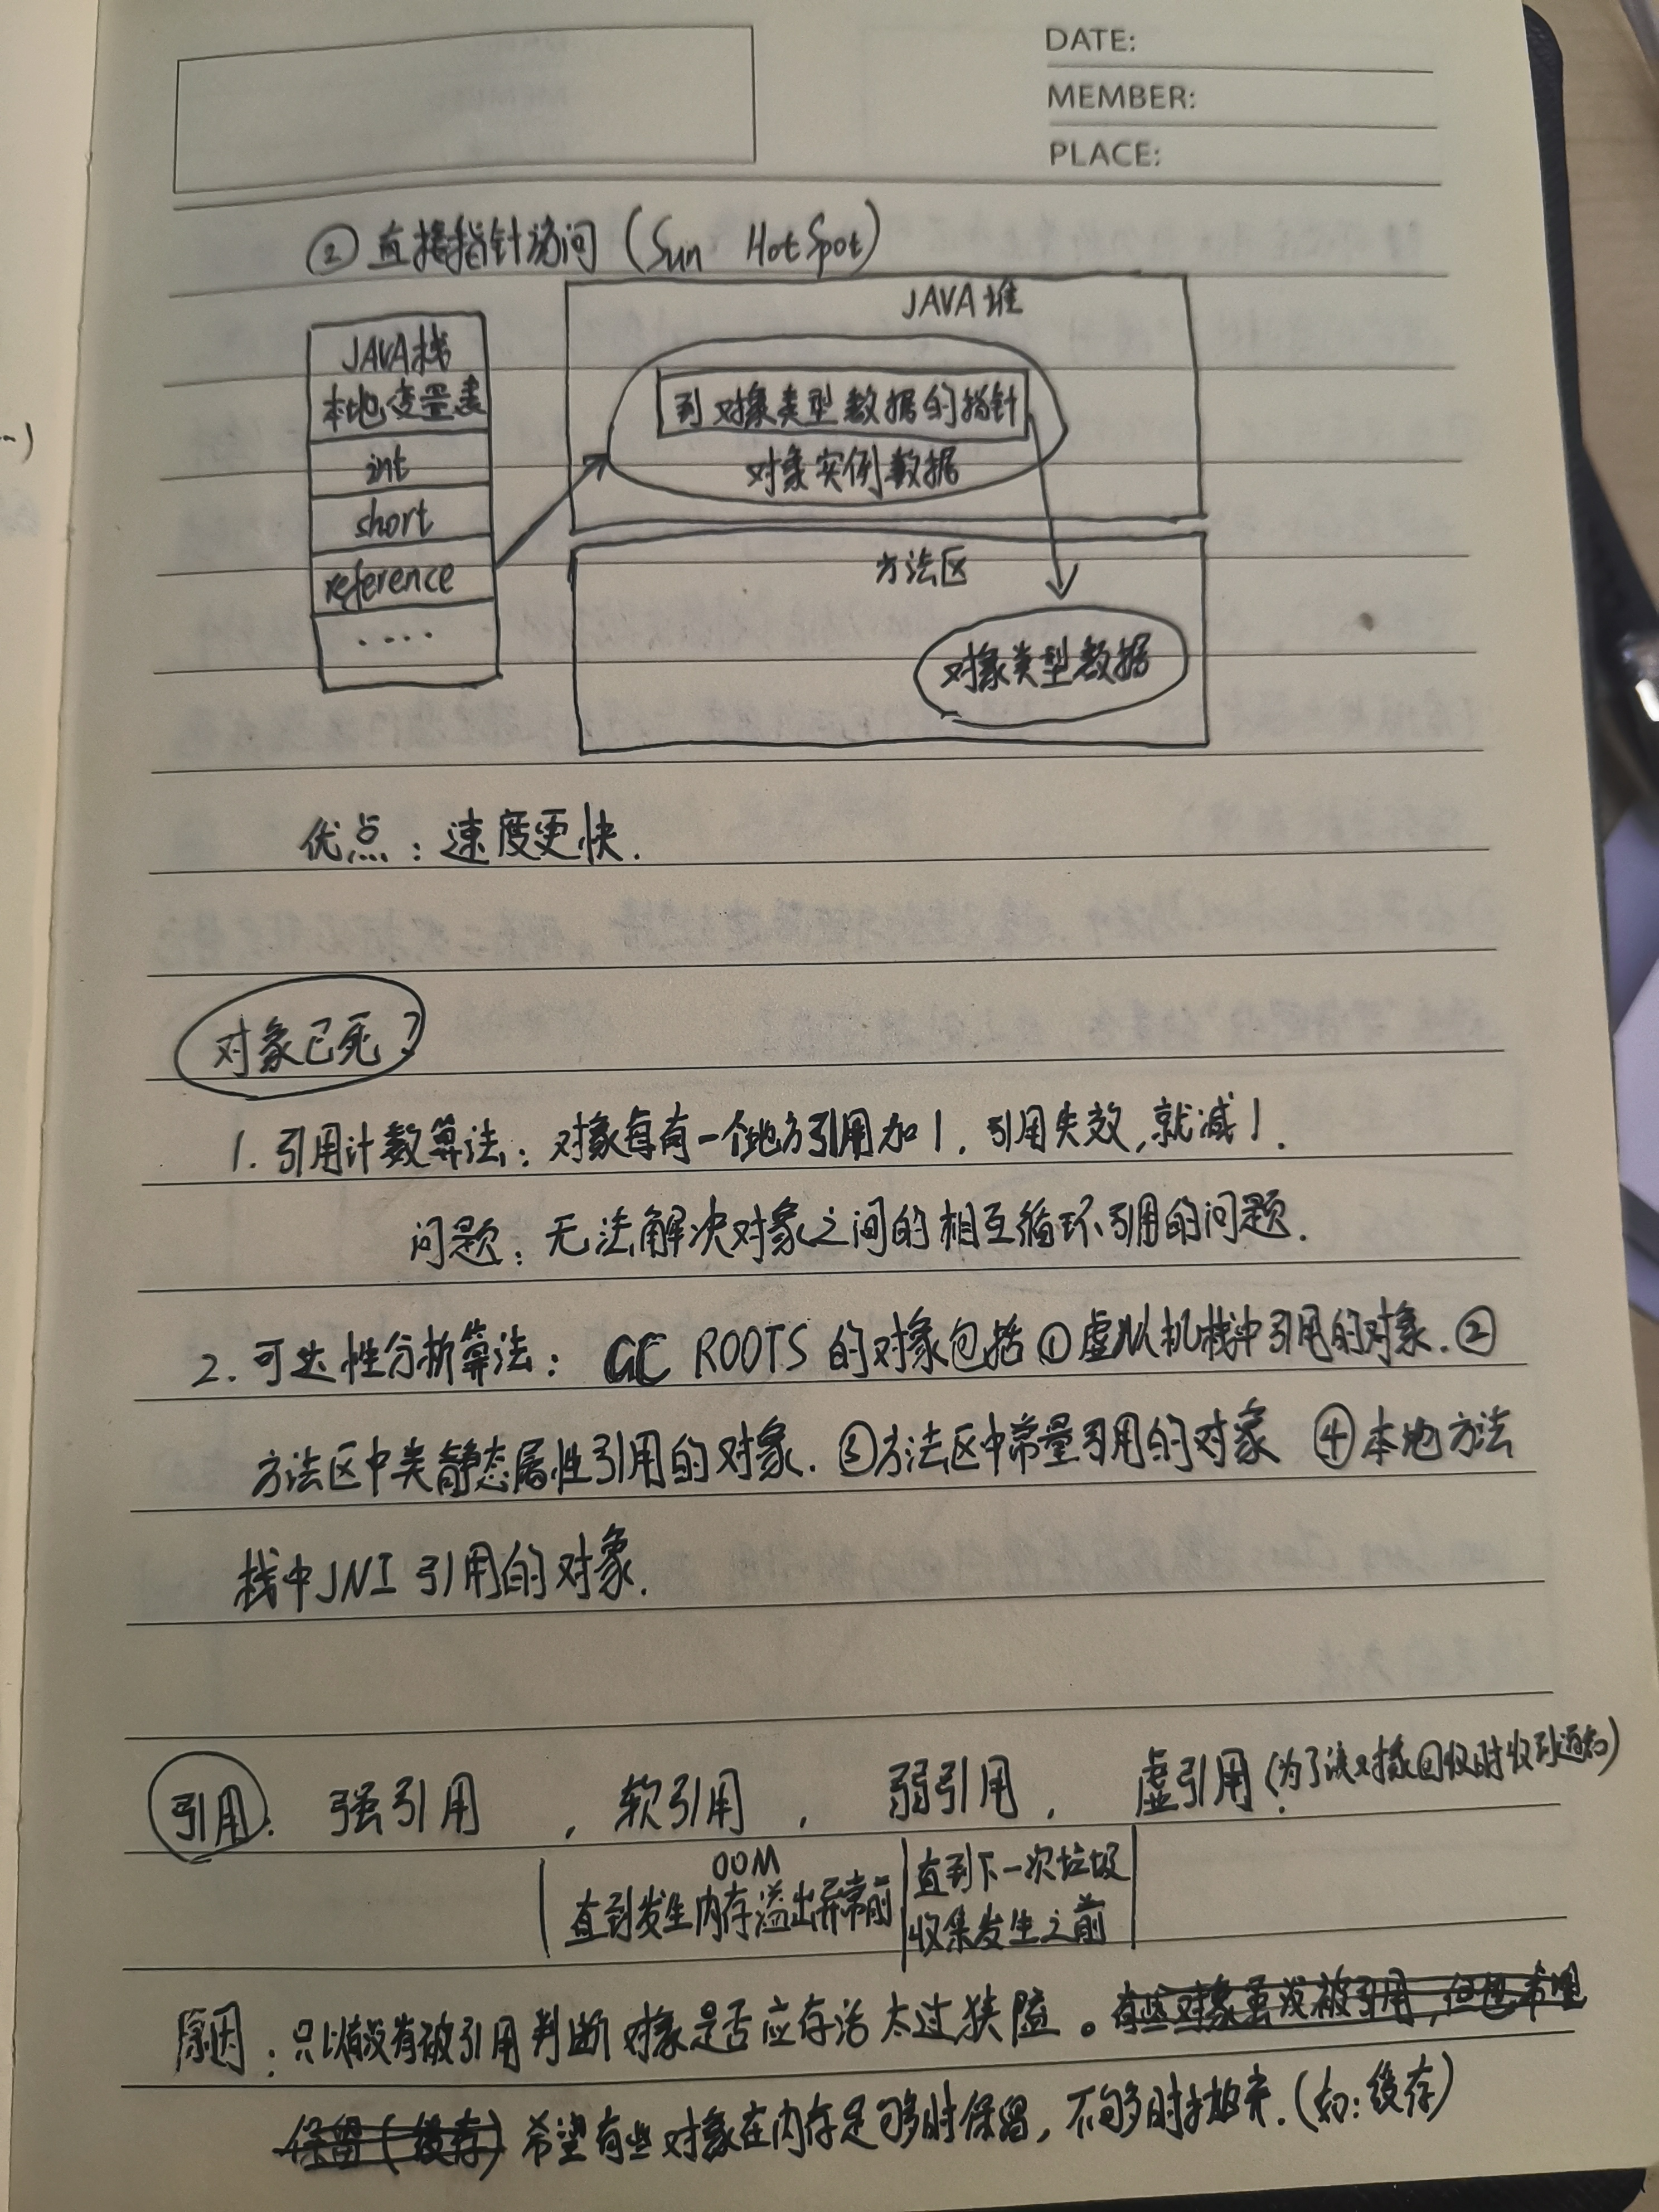 DATE:
MEMBER:
PLACE:
② 直接指针访问 (Sun HotSpot)
JAVA栈
本地变量表
int
short
reference
....
JAVA堆
到对象类型数据的指针
对象实例数据
方法区
对象类型数据
优点：速度更快.
对象已死?
1. 引用计数算法：对象每有一个地方引用加1, 引用失效,就减1.
问题：无法解决对象之间的相互循环引用的问题.
2. 可达性分析算法： GC ROOTS 的对象包括①虚拟机栈中引用的对象. ②
方法区中类静态属性引用的对象. ③方法区中常量引用的对象 ④本地方法
栈中JNI 引用的对象.
引用： 强引用 , 软引用 , 弱引用 , 虚引用 (为了该对象回收时收到通知)
OOM
直到发生内存溢出异常前
直到下一次垃圾
收集发生之前
原因：只以有没有被引用判断对象是否应存活太过狭隘。有些对象虽没被引用,但也希望
保留(缓存) 希望有些对象在内存足够时保留, 不够时抛弃.(如:缓存)